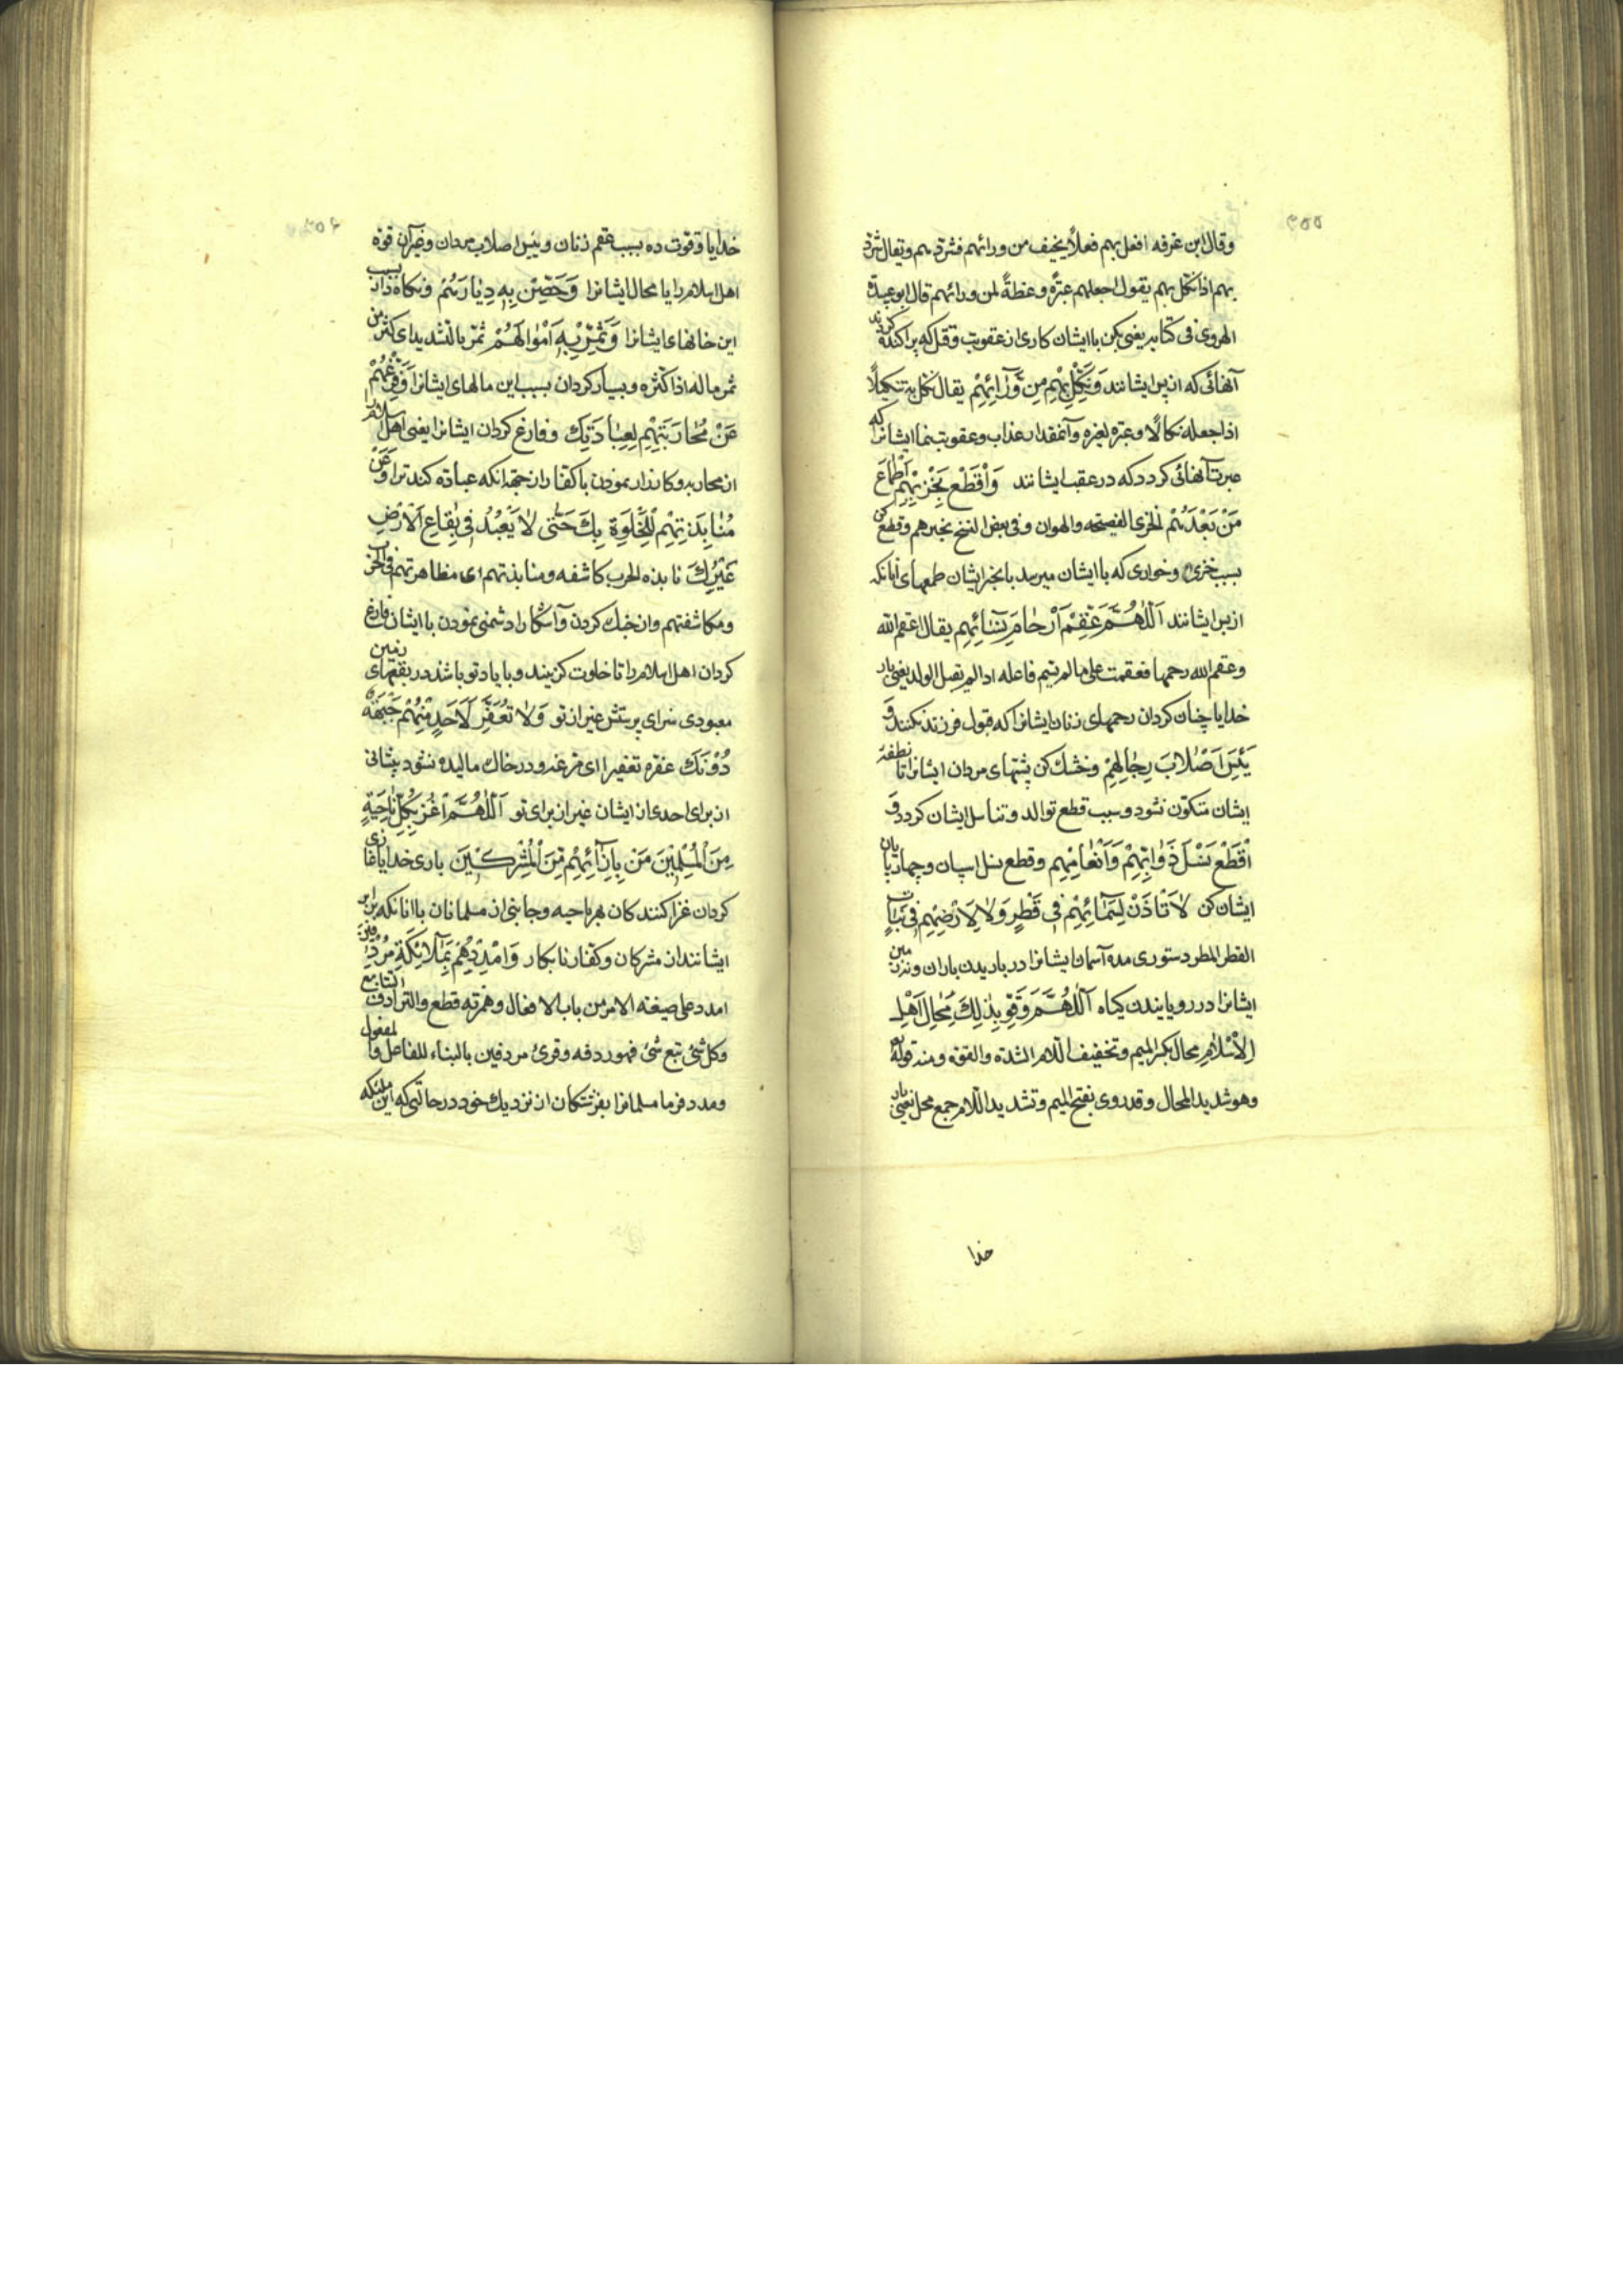 ۳۵۵
وقال ابن عرفه افعل بهم فعلاً یخیف من ورائهم فشرّد بهم ویقال شرّد
بهم اذا نکّل بهم یقول اجعلهم عبرة وعظةً لمن ورائهم قال ابو عبیدة
الهروی فی کتابه یعنی بکن با ایشان کاری از عقوبت وقتل که پراکنده کردند
آنهائی که از پس ایشانند وَنَکِّلْ بِهِمْ مِنْ وَّرَائِهِمْ یقال نکّل به تنکیلاً
اذا جعله نکالاً وعبرة لغیره وآنمقدار عذاب وعقوبت بنما ایشانرا که
عبرت آنهائی کردد که در عقب ایشانند وَاقْطَعْ بِخِزْیِهِمْ اَطْمَاعَ
مَنْ بَعْدَهُمْ الخزی الفضیحه والهوان وفی بعض النسخ بخبرهم وقطع کن
بسبب خزی وخواری که با ایشان میرسد یا بخبر ایشان طمعهای آنانکه
از پس ایشانند اَللّٰهُمَّ عَقِّمْ اَرْحَامَ نِسَائِهِمْ یقال اعقم الله
وعقم الله رحمها فعقمت علی ما لم یسم فاعله اذا لم تقبل الولد یعنی بار
خدایا چنان کردان رحمهای زنان ایشانرا که قبول فرزند نکنند وَ
یَبِّسْ اَصْلَابَ رِجَالِهِمْ وخشک کن پشتهای مردان ایشانرا تا نطفهٔ
ایشان متکوّن نشود وسبب قطع توالد وتناسل ایشان کردد وَ
اقْطَعْ نَسْلَ دَوَابِّهِمْ وَاَنْعَامِهِمْ وقطع نسل اسپان وچهارپایان
ایشان کن لَا تَأْذَنْ لِسَمَائِهِمْ فِی قَطْرٍ وَلَا لِاَرْضِهِمْ فِی نَبَاتٍ
القطر المطر دستوری مده آسمان ایشانرا در باریدن باران ونه زمین
ایشانرا در رویانیدن کیاه اَللّٰهُمَّ وَقَوِّ بِذٰلِکَ مِحَالَ اَهْلِ
الْاِسْلَامِ محال بکسر المیم وتخفیف اللام الشدّة والقوّه ومنه قوله تع
وهو شدید المحال وقد روی بفتح المیم وتشدید اللام جمع محل یعنی بار
خدا
۳۵۶
خدایا وقوت ده بسبب عقم زنان ویبس اصلاب مردان وغیر آن قوّه
اهل اسلام را یا محال ایشانرا وَحَصِّنْ بِهِ دِیَارَهُمْ ونکاه دار بسبب
این خانهای ایشانرا وَثَمِّرْ بِهِ اَمْوَالَهُمْ ثمّر بالتشدید ای کثّر من
ثمر ماله اذا کثره وبسیار کردان بسبب این مالهای ایشانرا وَفَرِّغْهُمْ
عَنْ مُحَارَبَتِهِمْ لِعِبَادَتِکَ وفارغ کردان ایشانرا یعنی اهل اسلام را
از محاربه وکارزار نمودن با کفار از جهة انکه عباده کنند ترا وَعَنْ
مُنَابَذَتِهِمْ لِلْخَلْوَةِ بِکَ حَتّٰی لَا یُعْبَدَ فِی بِقَاعِ الْاَرْضِ
غَیْرُکَ نابذه الحرب کاشفه ومنابذتهم ای مظاهرتهم فی الحرب
ومکاشفتهم واز جنک کردن وآشکارا دشمنی نمودن با ایشان فارغ
کردان اهل اسلام را تا خلوت کزینند وبا یاد تو باشند در بقعهای زمین
معبودی سزای پرستش غیر از تو وَلَا تُعَفَّرَ لِاَحَدٍ مِنْهُمْ جَبْهَةٌ
دُوْنَکَ عفره تعفیرا ای مرغه ودر خاک مالیده نشود پیشانی
از برای احدی از ایشان غیر از برای تو اَللّٰهُمَّ اغْزُ بِکُلِّ نَاحِیَةٍ
مِنَ الْمُسْلِمِیْنَ مَنْ بِاِزَائِهِمْ مِنَ الْمُشْرِکِیْنَ باری خدایا غازی
کردان غزا کنندکان هر ناحیه وجانبی از مسلمانان با انانکه برابر
ایشانند از مشرکان وکفار نابکار وَامْدِدْهُمْ بِمَلَائِکَةٍ مُرْدِفِیْنَ
امدد علی صیغة الامر من باب الافعال وهمزته قطع والترادف التتابع
وکل شئ تبع شئ فهو ردفه وقرئ مردفین بالبناء للفاعل والمفعول
ومدد فرما مسلمانرا بفرشتکان از نزدیک خود در حالتی که این ملئکه